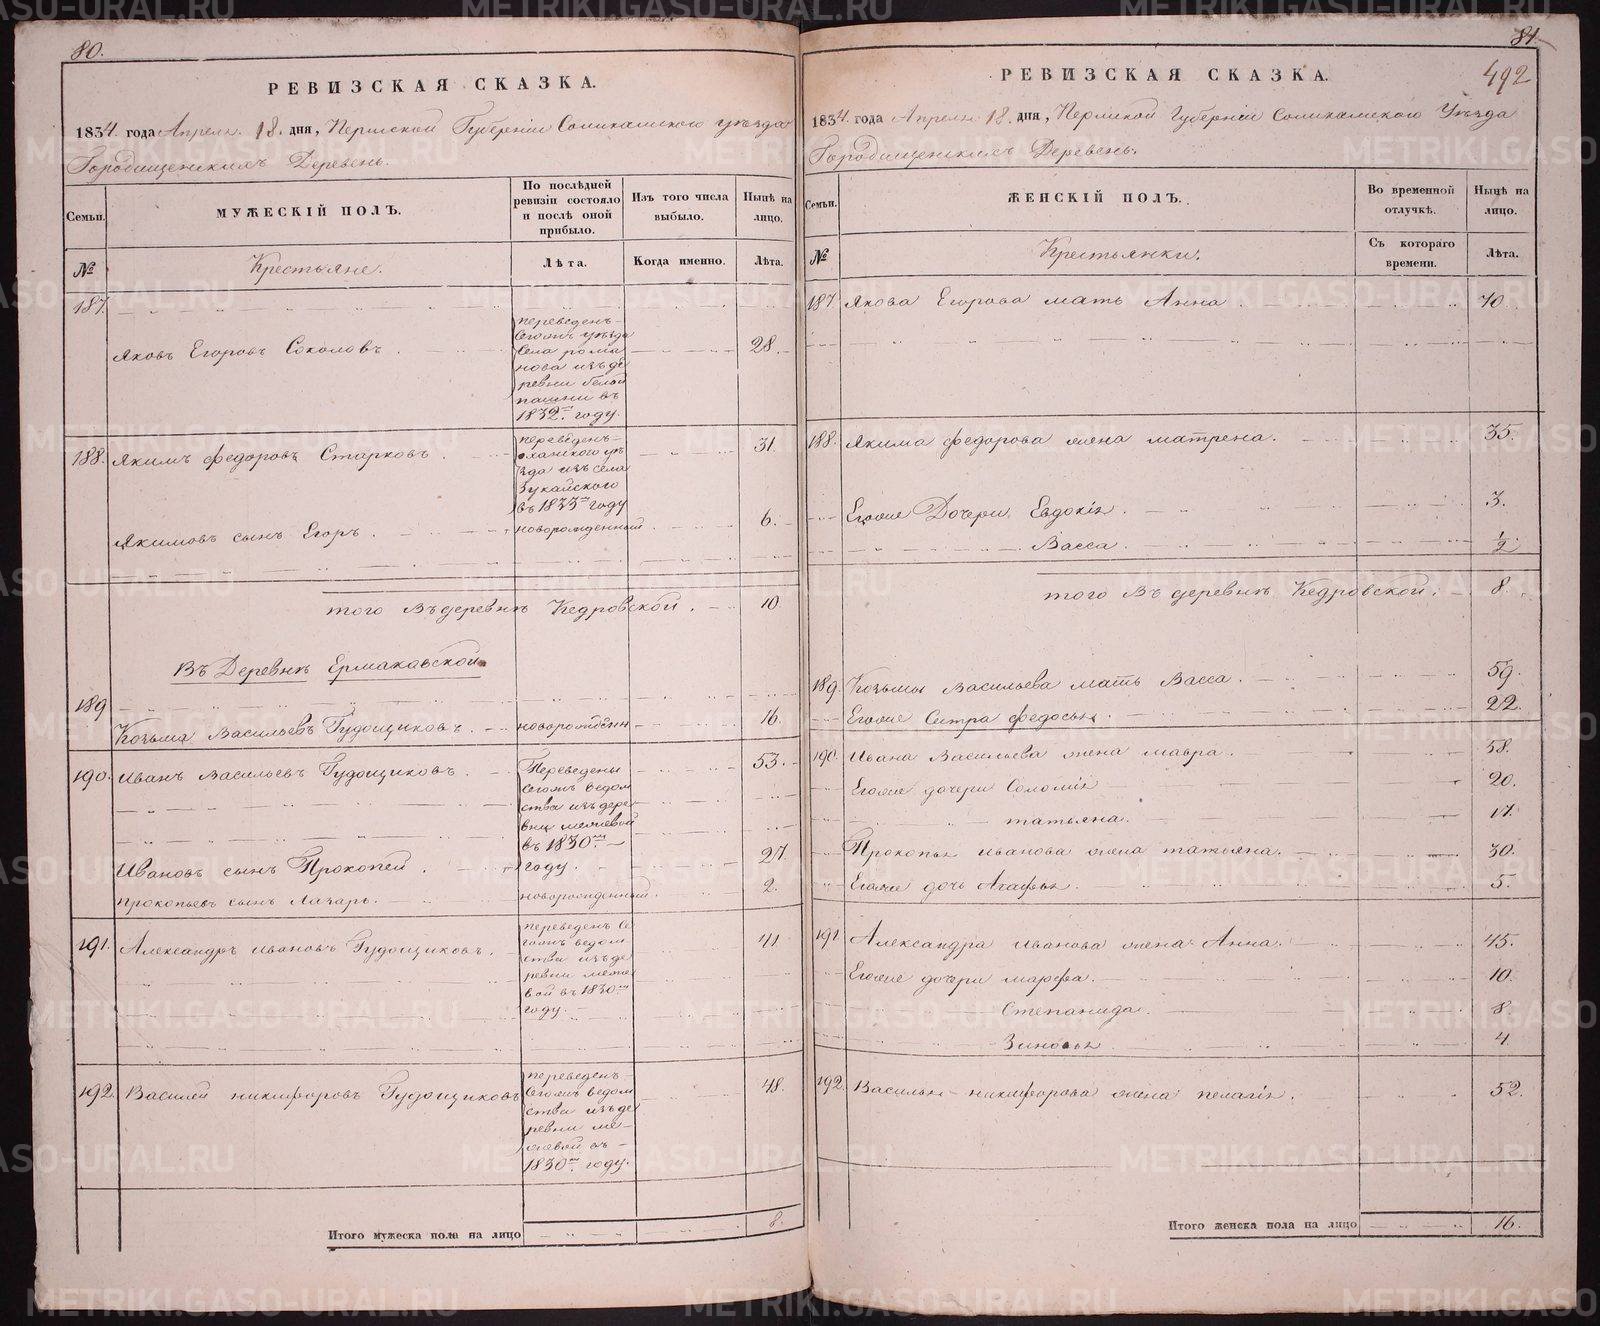 80.
РЕВИЗСКАЯ СКАЗКА.
1834. года Апреля 18. дня, Пермской Губернiи Соликамского уѣзда
Городищенскихъ Деревень.
Семьи.
МУЖЕСКIЙ ПОЛЪ.
По послѣдней
ревизiи состояло
и послѣ оной
прибыло.
Изъ того числа
выбыло.
Нынѣ на
лицо.
№
Крестьяне.
Лѣта.
Когда именно.
Лѣта.
187.
Яковъ Егоровъ Соколовъ.
переведенъ
Сегожъ уѣзда
Села рома
нова изъ де
ревни белой
пашни въ
1832м году.
28.
188. Якимъ федоровъ Старковъ.
переведенъ
оханского уѣ
зда изъ села
Зукайского
въ 1833м году
31.
Якимовъ сынъ Егоръ.
новорожденный
6.
того Въ деревнѣ Кедровской.
10.
Въ Деревнѣ Ермакавской
189
Козьма Васильевъ Гудощиковъ.
16.
190. Иванъ Васильевъ Гудощиковъ.
Переведены
Сегожъ ведом
ства изъ дере
вни межевой
въ 1830м
году.
53.
Ивановъ сынъ Прокопей
27.
прокопьевъ сынъ Лазарь.
новорожденный.
2.
191. Александръ ивановъ Гудощиковъ.
переведенъ Се
гожъ ведом
ства изъ де
ревни меже
вой въ 1830м
году.
41
192. Василей никифоровъ Гудощиковъ
переведенъ
Сегожъ ведом
ства изъ де
ревни ме
жевой въ
1830м году.
48.
Итого мужеска пола на лицо
8.
81.
492
РЕВИЗСКАЯ СКАЗКА.
1834. года Апреля 18. дня, Пермской Губернiи Соликамского Уѣзда
Городищенскихъ Деревень.
Семьи.
ЖЕНСКIЙ ПОЛЪ.
Во временной
отлучкѣ.
Нынѣ на
лицо.
№
Крестьянки.
Съ котораго
времени.
Лѣта.
187 Якова Егорова мать Анна 70.
188. Якима федорова жена матрена. 35.
Егоже Дочери Евдокiя. 3.
Васса. ½
того Въ деревнѣ Кедровской. 8.
189. Козьмы Васильева мать Васса. 59.
Егоже Сестра федосья. 22.
190. Ивана Васильева жена мавра. 58.
Егоже дочери Соломiя 20.
татьяна. 17.
Прокопья иванова жена татьяна. 30.
Егоже дочь Агафья. 5.
191. Александра иванова жена Анна. 45.
Егоже дочери марфа. 10.
Степанида. 8.
Зиновья 4.
192. Василья никифорова жена пелагiя. 52.
Итого женска пола на лицо
16.
METRIKI.GASO-URAL.RU